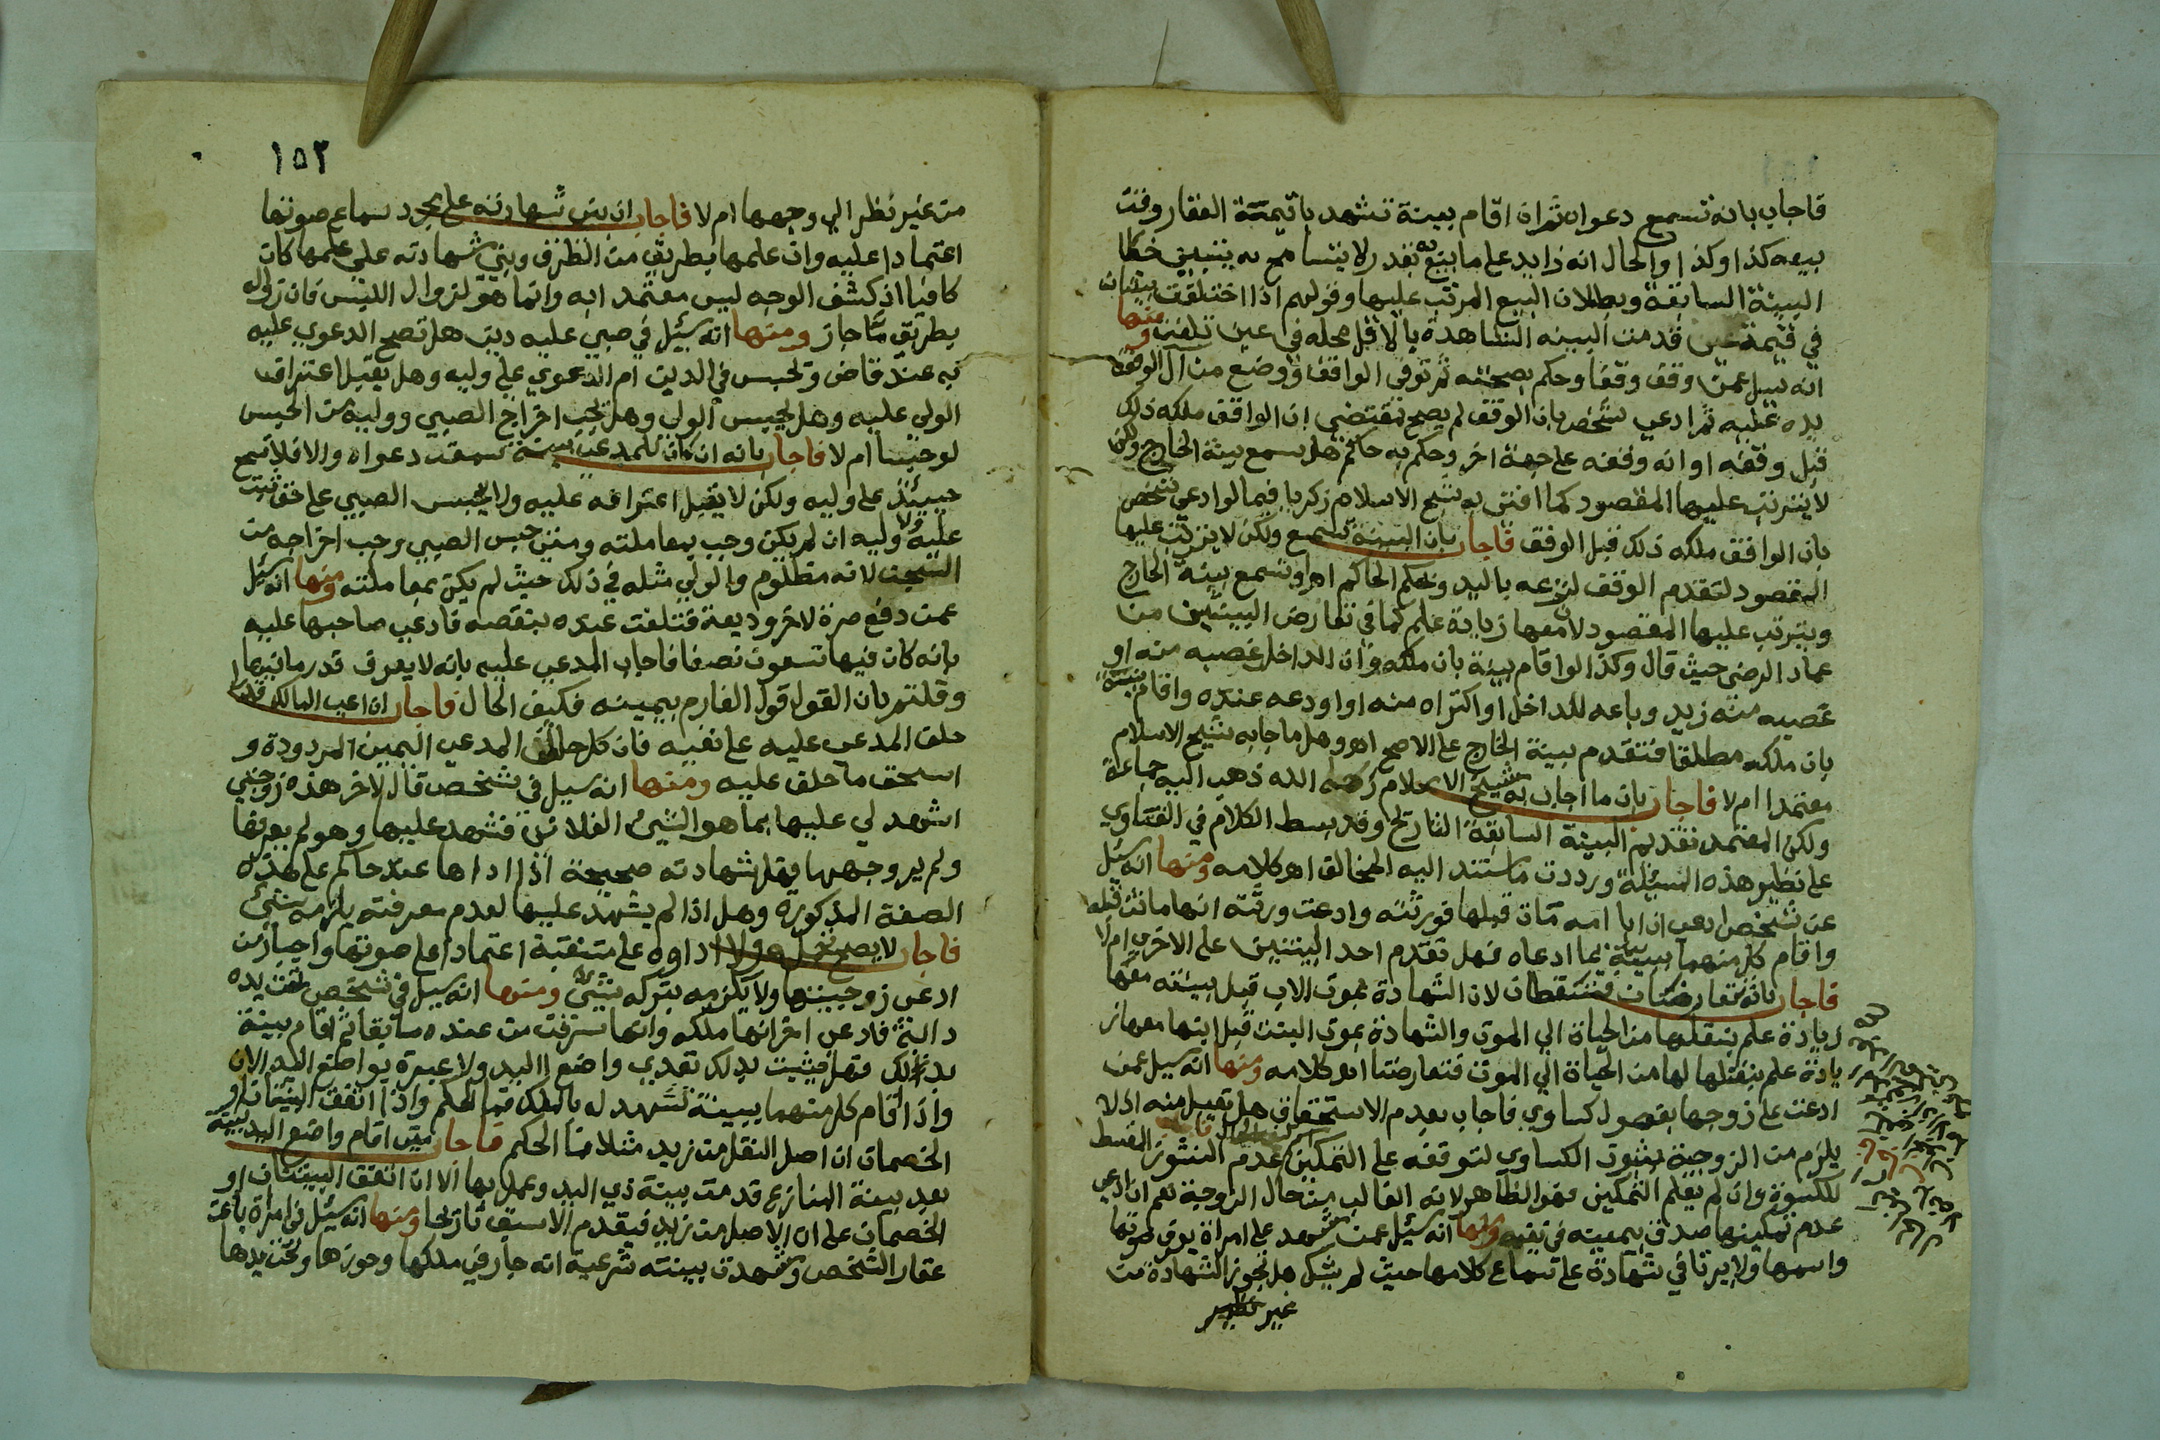 فاجاب بانه تسمع دعواه ثم ان اقام بينة تشهد بان قيمة العقار وقت
بيعه كذا وكذا والحال انه زايد على ما بيع به بقدر لا يتسامح به يتبين خطا
البينة السابقة وبطلان البيع المرتب عليها وقولهم اذا اختلفت بينتان
في قيمة عين قدمت البينه الشاهدة بالاقل محله في عين تلفت ومنها
انه سيل عمن وقف وقفا وحكم بصحته ثم توفي الواقف ووضع من آل الوقف
يده عليه ثم ادعي شخص بان الوقف لم يصح بمقتضي ان الواقف ملكه ذلك
قبل وقفه او انه وقفه على جهة اخر وحكم به حاكم هل يسمع بينة الخارج ولكن
لا يترتب عليها المقصود كما افتى به شيخ الاسلام زكريا فيما لو ادعي شخص
بان الواقف ملكه ذلك قبل الوقف فاجاب بان البينة تسمع ولكن لا يترتب عليها
المقصود لتقدم الوقف لنزعه باليد وبحكم الحاكم او تسمع بينة الخارج
ويترتب عليها المقصود لان معها زيادة علم كما في تعارض البينتين من
عماد الرضى حيث قال وكذا لو اقام بينة بان ملكه وان الداخل غصبه منه او
غصبه منه زيد وباعه للداخل او اكتراه منه او اودعه عنده واقام بينة
بان ملكه مطلقا فتقدم بينة الخارج على الاصح اهـ وهل ما جابه شيخ الاسلام
معتمدا ام لا فاجاب بان ما اجاب به شيخ الاسلام رحمه الله ذهب اليه جماعة
ولكن المعتمد تقديم البينة السابقة التاريخ وقد بسط الكلام في الفتاوي
على نظير هذه المسئلة ورددت ما ستند اليه المخالف اهـ كلامه ومنها انه سئل
عن شخص ادعى ان ابا امه مات قبلها فورثته وادعت ورثته انها ماتت قبله
واقام كل منهما بينة بما ادعاه فهل تقدم احد البينتين على الاخرى ام لا
فاجاب بانه تعارضتان فتسقطان لان الشهادة بموت الاب قبل بينته معها
زيادة علم بنقلها من الحياة الي الموت والشهادة بموت البنت قبل ابيها معها ز
يادة علم بنقلها لها من الحياة الي الموت فتعارضتا اهـ كلامه ومنها انه سيل عمن
ادعت على زوجها بفصول كساوي فاجاب بعدم الاستحقاق هل تقبل منه اذ لا
يلزم من الزوجية بثبوت الكساوي لتوقفه على التمكين وعدم النشوز المسقط
للكسوة وان لم يعلم التمكين فهو الظاهر لانه الغالب من حال الزوجية نعم ان ادعى
عدم تمكينها صدق بيمينه في نفيه ومنها انه سئل عمن شهد على امراة يعرف صوتها
واسمها ولا يرتاب في شهادة على سماع كلامها حيث لم يشك هل تجوز الشهادة من
غير نظر
١٥٢
من غير نظر الي وجهها ام لا فاجاب ان بني شهادته على مجرد سماع صوتها
اعتمادا عليه وان علمها بطريق من الطرق وبني شهادته على علمها كان
كافيا اذ كشف الوجه ليس معتمد ابه وانما هو لزوال اللبس فان زواله
بطريق ما جاز ومنها انه سئل في صبي عليه دين هل تصح الدعوي عليه
به عند قاض وتحبس في الدين ام الدعوي على وليه وهل يقبل اعتراف
الولى عليه وهل يحبس الولى وهل يجب اخراج الصبي ووليه من الحبس
لو حبسا ام لا فاجاب بانه ان كان للمدعى بينة سمعت دعواه والا فلا تسمع
حينئذ على وليه ولكن لا يقبل اعترافه عليه ولا يحبس الصبي على حق ثبت
عليه ولا وليه ان لم يكن وجب بمعاملته ومتى حبس الصبي وجب اخراجه من
السجن لانه مظلوم والولي مثله في ذلك حيث لم يكن بمعاملته ومنها انه سئل
عمن دفع صرة لاخر وديعة فتلفت عنده بتقصه فادعي صاحبها عليه
بانه كان فيها تسعون نصفا فاجاب المدعي عليه بانه لا يعرف قدر ما فيها
وقلتم بان القول قول الغارم بيمينه فكيف الحال فاجاب ان ادعى المالك قدرا
حلف المدعى عليه على نفيه فان نكل حلف المدعى اليمين المردودة و
استحق ما حلف عليه ومنها انه سيل في شخص قال لاخر هذه زوجتي
اشهد لي عليها بما هو الشئ الفلاني فشهد عليها وهو لم يعرفها
ولم ير وجهها فهل شهادته صحيحة اذا اداها عند حاكم على هذه
الصفة المذكورة وهل اذا لم يشهد عليها لعدم معرفته يلزمه شئ
فاجاب لا يصح تحمل ولا اداوه على متنقبة اعتمادا على صوتها واخبار من
ادعى زوجيتها ولا يلزمه بتركه شئ ومنها انه سيل في شخص تحت يده
دابة فادعى اخر انها ملكه وانها سرقت من عنده سابقا ثم اقام بينة
بذلك فهل يثبت بذلك تعدي واضع اليد ولا عبرة بواضع اليد الان
واذا اقام كل منهما بينة تشهد له بالملك فما الحكم واذا اتفقت البينتان او
الخصمان ان اصل النقل من زيد مثلا فما الحكم فاجاب متى اقام واضع اليد بينة
بعد بينة المنازع قدمت بينة ذي اليد وعمل بها الا ان اتفقت البينتان او
الخصمان على ان الاصل من زيد فيقدم الاسبق تاريخا ومنها انه سئل في امراة باعت
عقار الشخص وشهدت بينته شرعية انه جار في ملكها وحوزها وتحت يدها